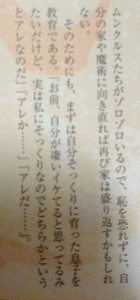 ムンクルスたちがゾロゾロいるので、恥を恐れずに、自
分の家や魔術に向き直れば再び家は盛り返すかもしれ
ない。
そのためにも、まずは自分そっくりに育った息子を
教育である。「お前、自分が凄いイケてると思ってるみ
たいだけど、実は私にそっくりなのでどちらかという
とアレなのだ」「アレか……」「アレだ……」。